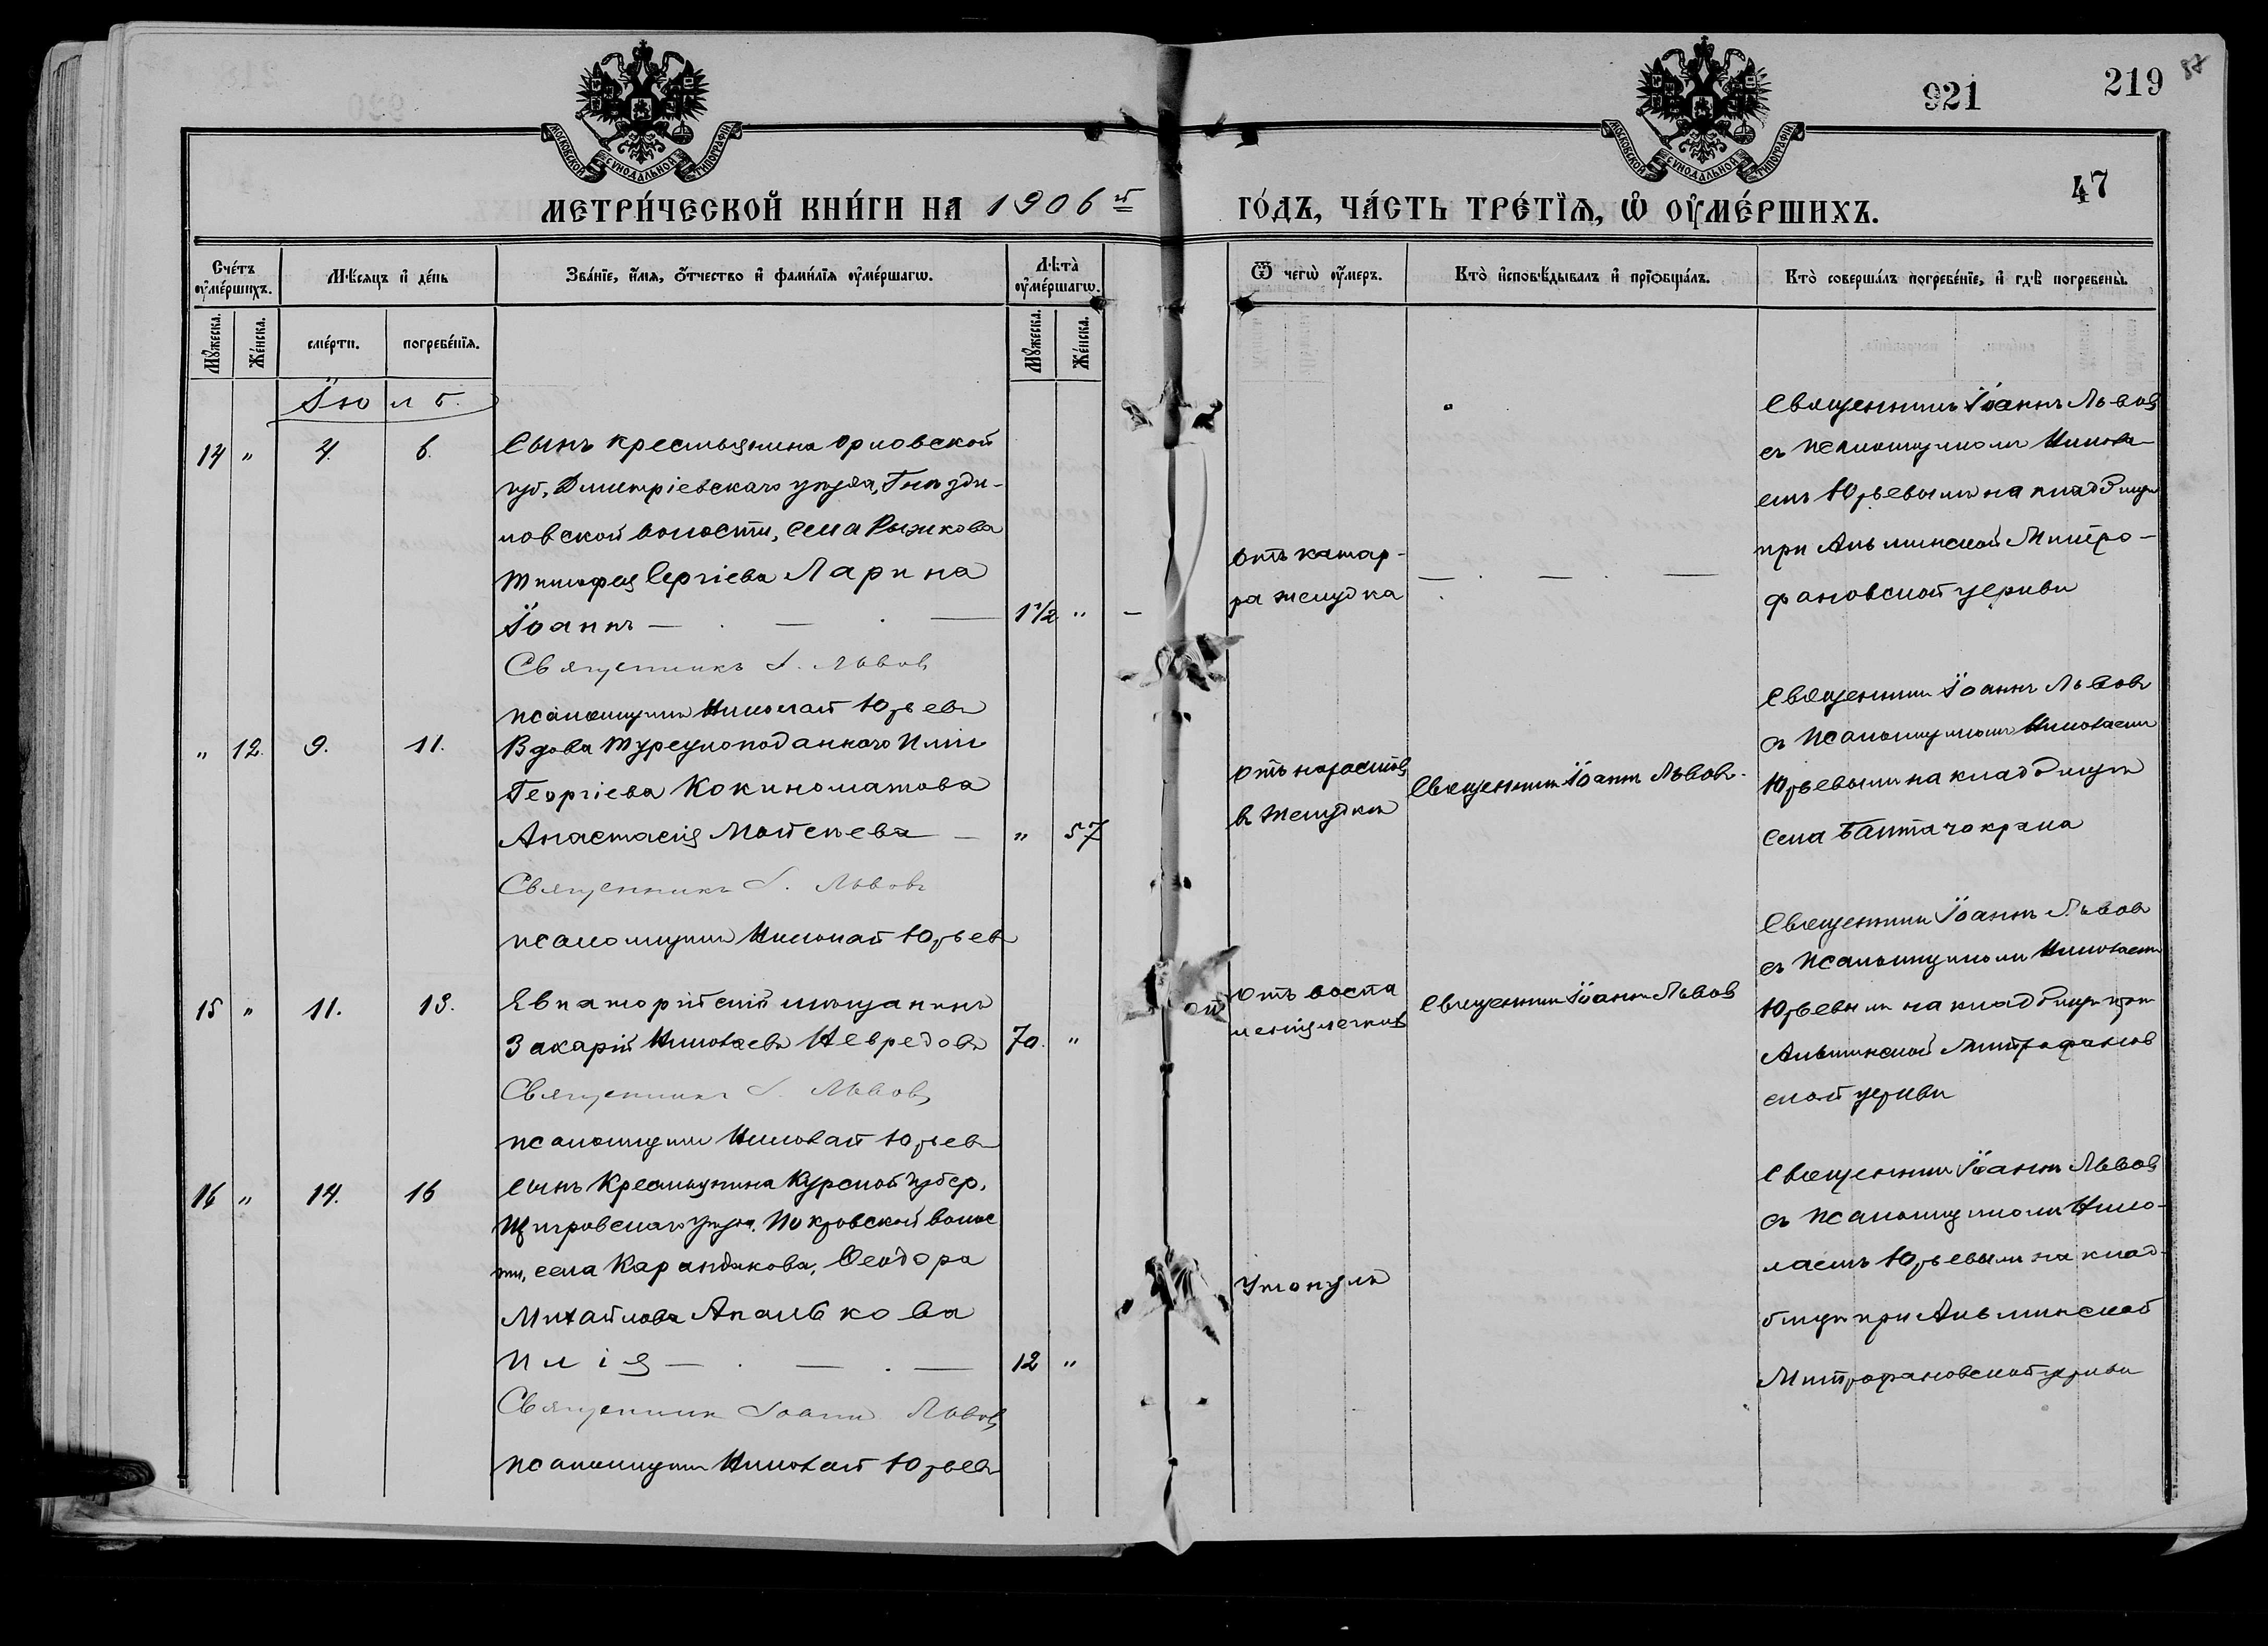 921
219
47
МОСКОВСКОЙ СѴНОДАЛЬНОЙ ТИПОГРАФІИ
МОСКОВСКОЙ СѴНОДАЛЬНОЙ ТИПОГРАФІИ
МЕТРИ́ЧЕСКОЙ КНИ́ГИ НА 1906 й
ГО́ДЪ, ЧА́СТЬ ТРЕ́ТЇѦ, Ѽ ОУ҆МЕ́РШИХЪ.
Сче́тъ оу҆ме́ршихъ.
Мѣ́сяцъ и҆ де́нь
Зва́нїе, и҆́мѧ, ѻ҆́тчество и҆ фами́лїѧ оу҆ме́ршагѡ.
Лѣ̀та̀ оу҆ме́ршагѡ.
Ѿ чегѡ̀ оу҆́меръ.
Кто̀ и҆сповѣ́дывалъ и҆ прїѡбща́лъ.
Кто̀ соверша́лъ погребе́нїе, и҆ гдѣ̀ погребены̀.
Мꙋ́жеска.
Же́нска.
сме́рти.
погребе́нїѧ.
Мꙋ́жеска.
Же́нска.
Іюль.
14 " 4. 6.
Сынъ крестьянина Орловской
губ., Дмитріевскаго уѣзда, Гнѣзди-
ловской волости, села Рыжкова
Тимофея Сергіева Ларина
Іоаннъ — . — . — 1 1/2 " —
Священникъ І. Львовъ
псаломщикъ Николай Юрьевъ
Отъ катар-
ра желудка
— . — . —
Священникъ Іоаннъ Львовъ
съ псаломщикомъ Никола-
емъ Юрьевымъ на кладбищѣ
при Альминской Митро-
фановской церкви
" 12. 9. 11.
Вдова Турецкоподаннаго Иліи
Георгіева Кокиноматова
Анастасія Моисеева — " 57
Священникъ І. Львовъ
псаломщикъ Николай Юрьевъ
Отъ наростовъ
въ желудкѣ
Священникъ Іоаннъ Львовъ.
Священникъ Іоаннъ Львовъ
съ псаломщикомъ Николаемъ
Юрьевымъ на кладбищѣ
села
15 " 11. 13.
Евпаторійскій мѣщанинъ
Захарій Николаевъ Невредовъ 70. "
Священникъ І. Львовъ
псаломщикъ Николай Юрьевъ
Отъ воспа
ленія легкихъ
Священникъ Іоаннъ Львовъ
Священникъ Іоаннъ Львовъ
съ псаломщикомъ Николаемъ
Юрьевымъ на кладбищѣ при
Альминской Митрофанов
ской церкви
16 " 14. 16
Сынъ крестьянина Курской губер.
Щигровскаго уѣзда, Покровской волос
ти, села Карандакова, Ѳеодора
Михайлова Апалькова
Илія — . — . — 12 "
Священникъ Іоаннъ Львовъ
псаломщикъ Николай Юрьевъ
Утонулъ
Священникъ Іоаннъ Львовъ
съ псаломщикомъ Нико-
лаемъ Юрьевымъ на клад-
бищѣ при Альминской
Митрофановской церкви